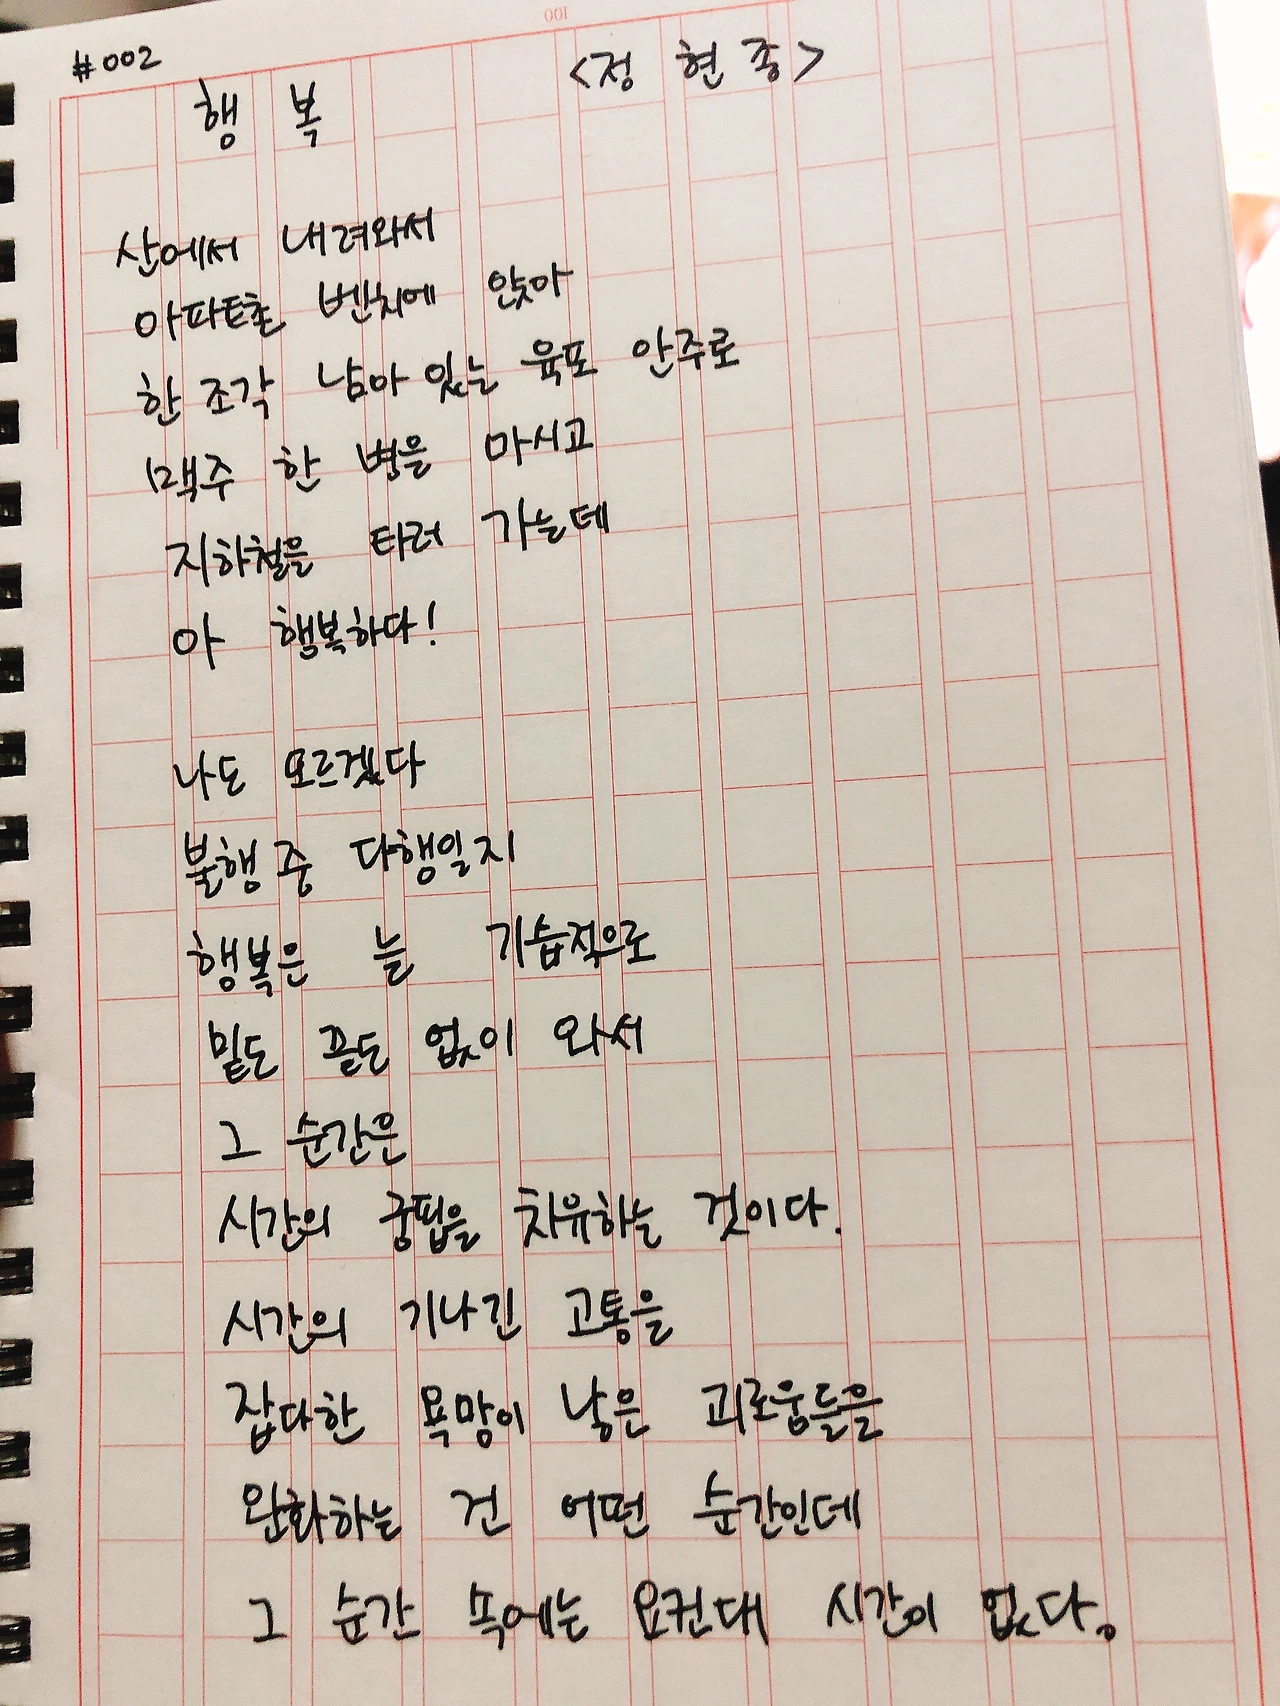 100
#002
행 복 <정 현 종>
산에서 내려와서
아파트촌 벤치에 앉아
한 조각 남아 있는 육포 안주로
맥주 한 병을 마시고
지하철을 타러 가는데
아 행복하다!
나도 모르겠다
불행 중 다행일지
행복은 늘 기습적으로
밑도 끝도 없이 와서
그 순간은
시간의 궁핍을 치유하는 것이다.
시간의 기나긴 고통을
잡다한 욕망이 낳은 괴로움들을
완화하는 건 어떤 순간인데
그 순간 속에는 요컨대 시간이 없다.